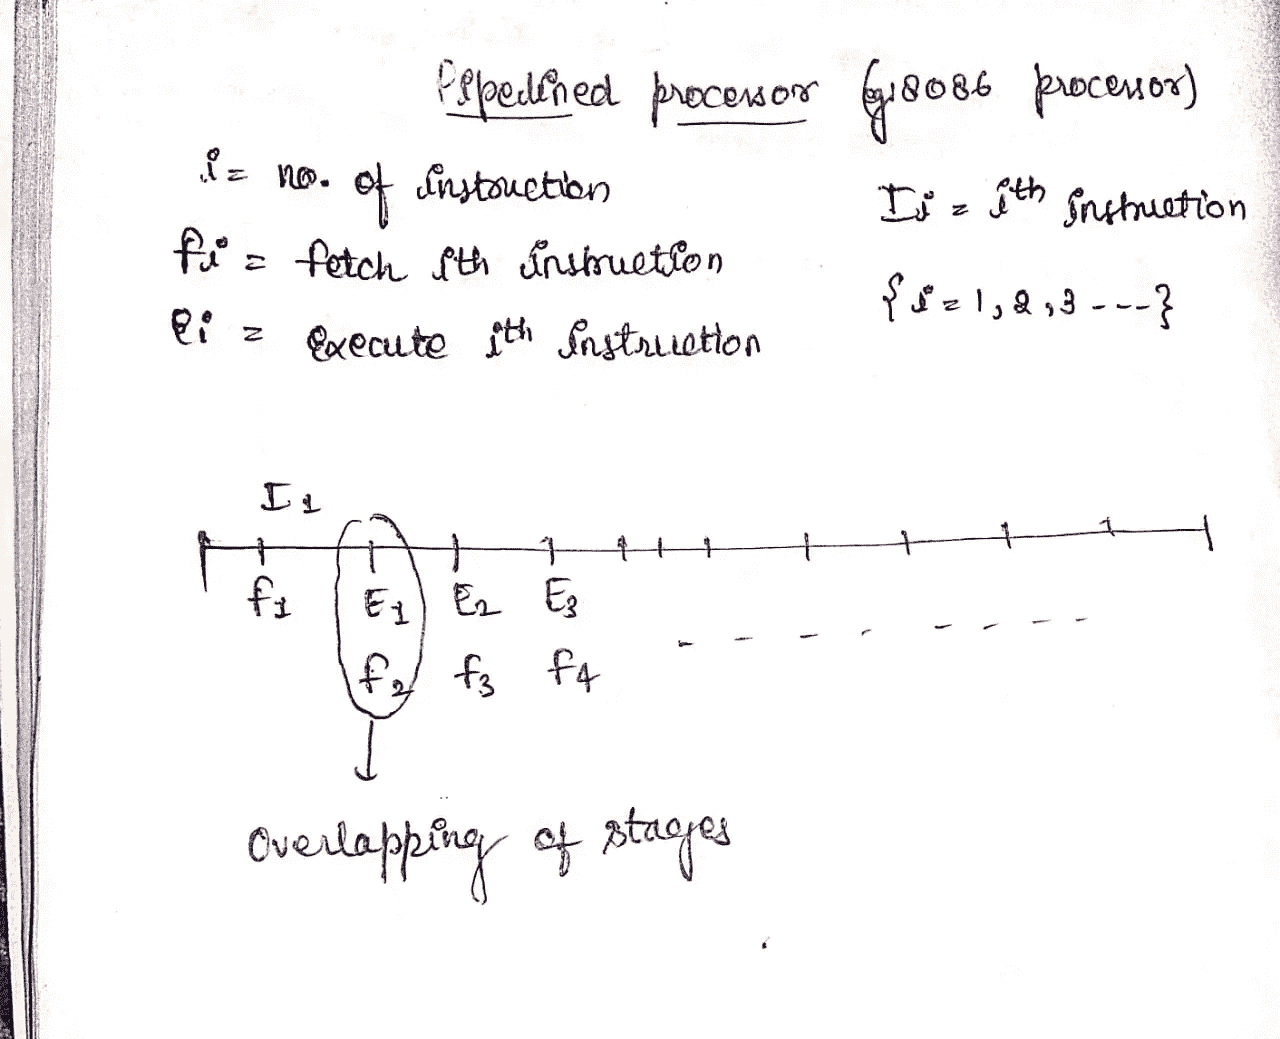 Pipelined processor (eg: 8086 processor)
i = no. of instruction
Ii = ith instruction
fi = fetch ith instruction
{i = 1, 2, 3 ---}
ei = execute ith instruction
I1
f1 E1 E2 E3
f2 f3 f4 - - - - - - - -
Overlapping of stages